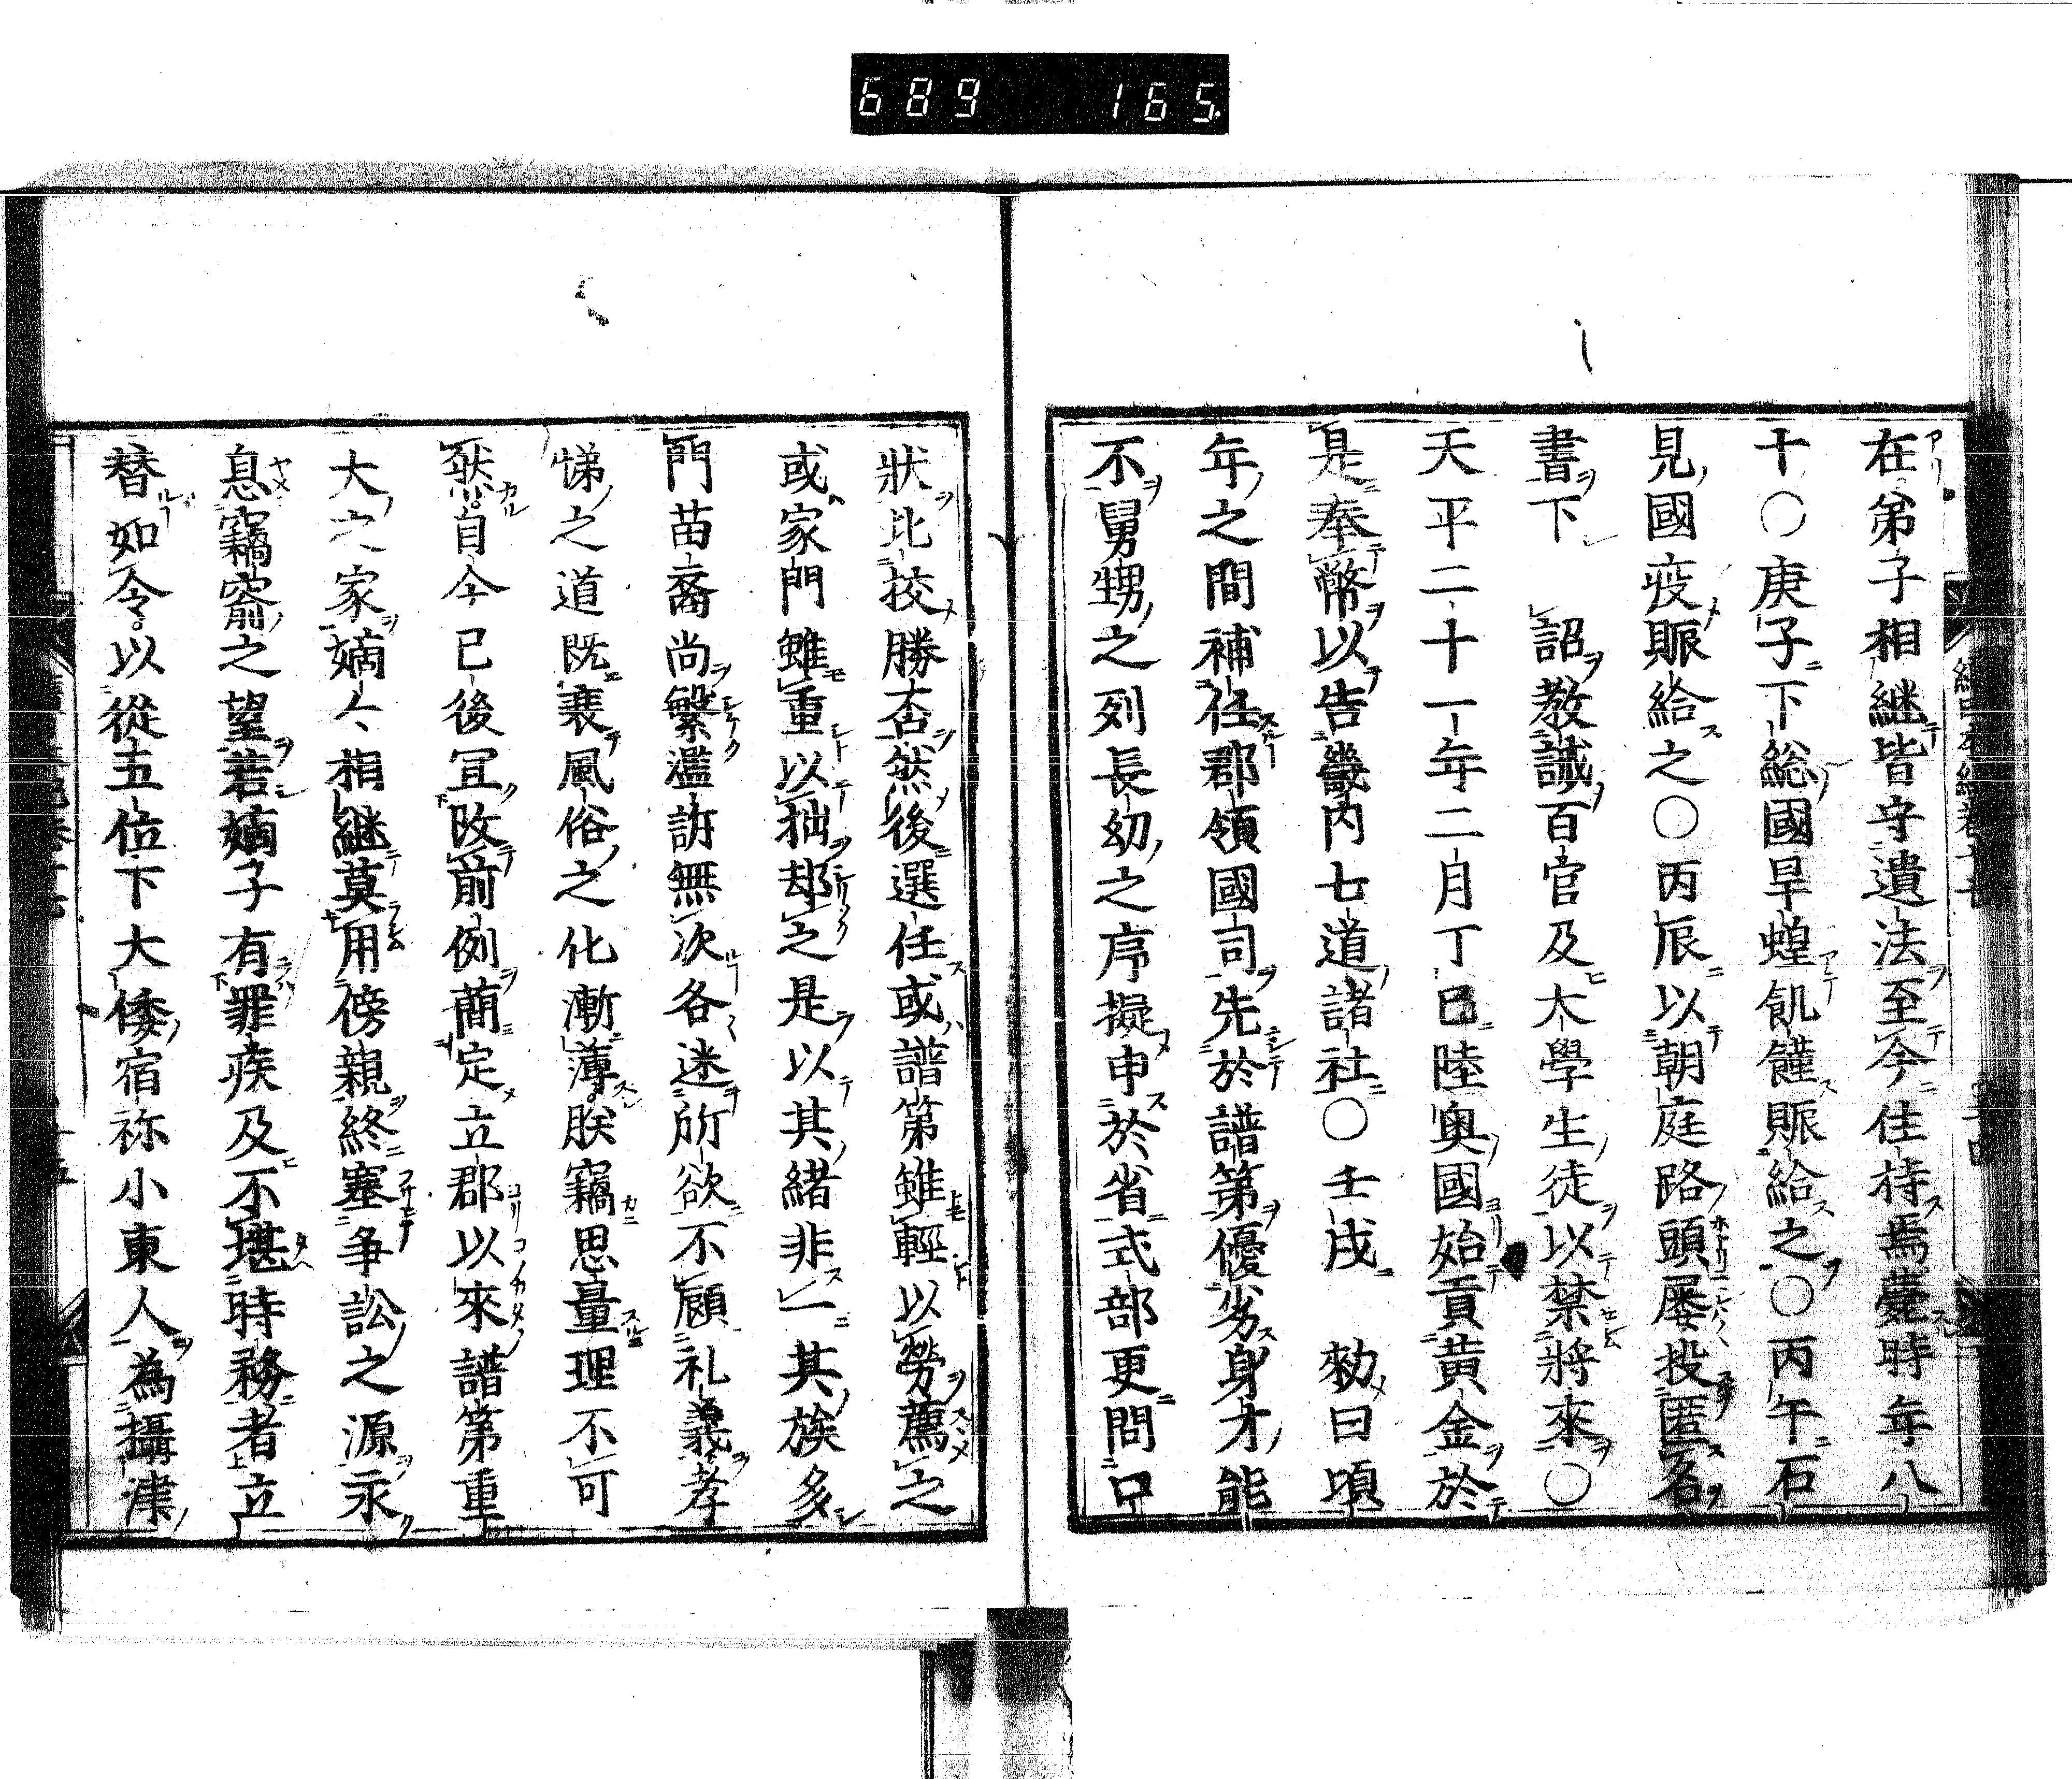 689 165
在弟子相継皆守遺法至今住持焉薨時年八
十○庚子下総國旱蝗飢饉賑給之○丙午石
見國疫賑給之○丙辰以朝庭路頭屡投匿名
書下 詔教誡百官及大學生徒以禁將來○
天平二十一年二月丁巳陸奥國始貢黄金於
是奉幣以告畿内七道諸社○壬戌 勅曰頃
年之間補任郡領國司先於譜第優劣身才能
不舅甥之列長幼之序擬申於省式部更問口
狀比挍勝否然後選任或譜第雖輕以勞薦之
或家門雖重以拙却之是以其緒非一其族多
門苗裔尚繁濫訴無次各迷所欲不顧礼義孝
悌之道既衰風俗之化漸薄朕竊思量理不可
然自今已後冝改前例簡定立郡以來譜第重
大之家嫡々相継莫用傍親終塞争訟之源永
息窺窬之望若嫡子有罪疾及不堪時務者立
替如令以從五位下大倭宿祢小東人為攝津